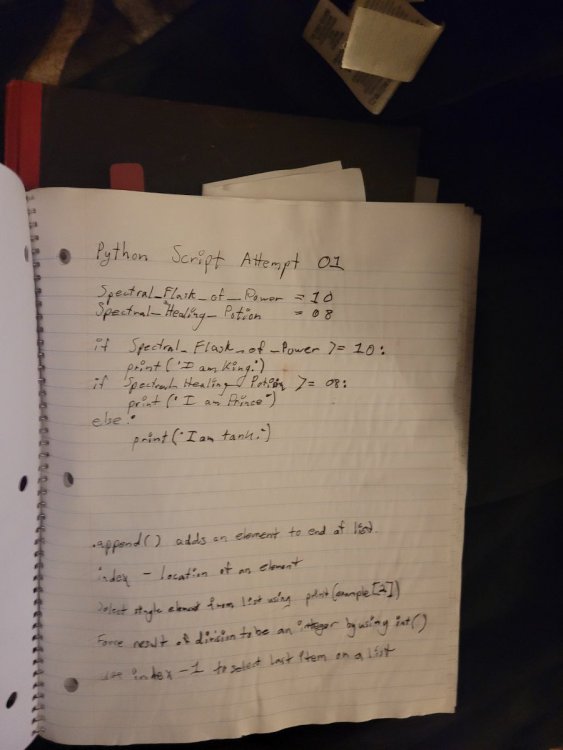 Python Script Attempt 01
Spectral_Flask_of_Power = 10
Spectral_Healing_Potion = 08
if Spectral_Flask_of_Power >= 10:
print("I am King.")
if Spectral_Healing_Potion >= 08:
print("I am Prince")
else:
print("I am tank.")
.append() adds an element to end of list.
index - location of an element
Select single element from list using print(example[2])
Force result of division to be an integer by using int()
use index -1 to select last item on a list